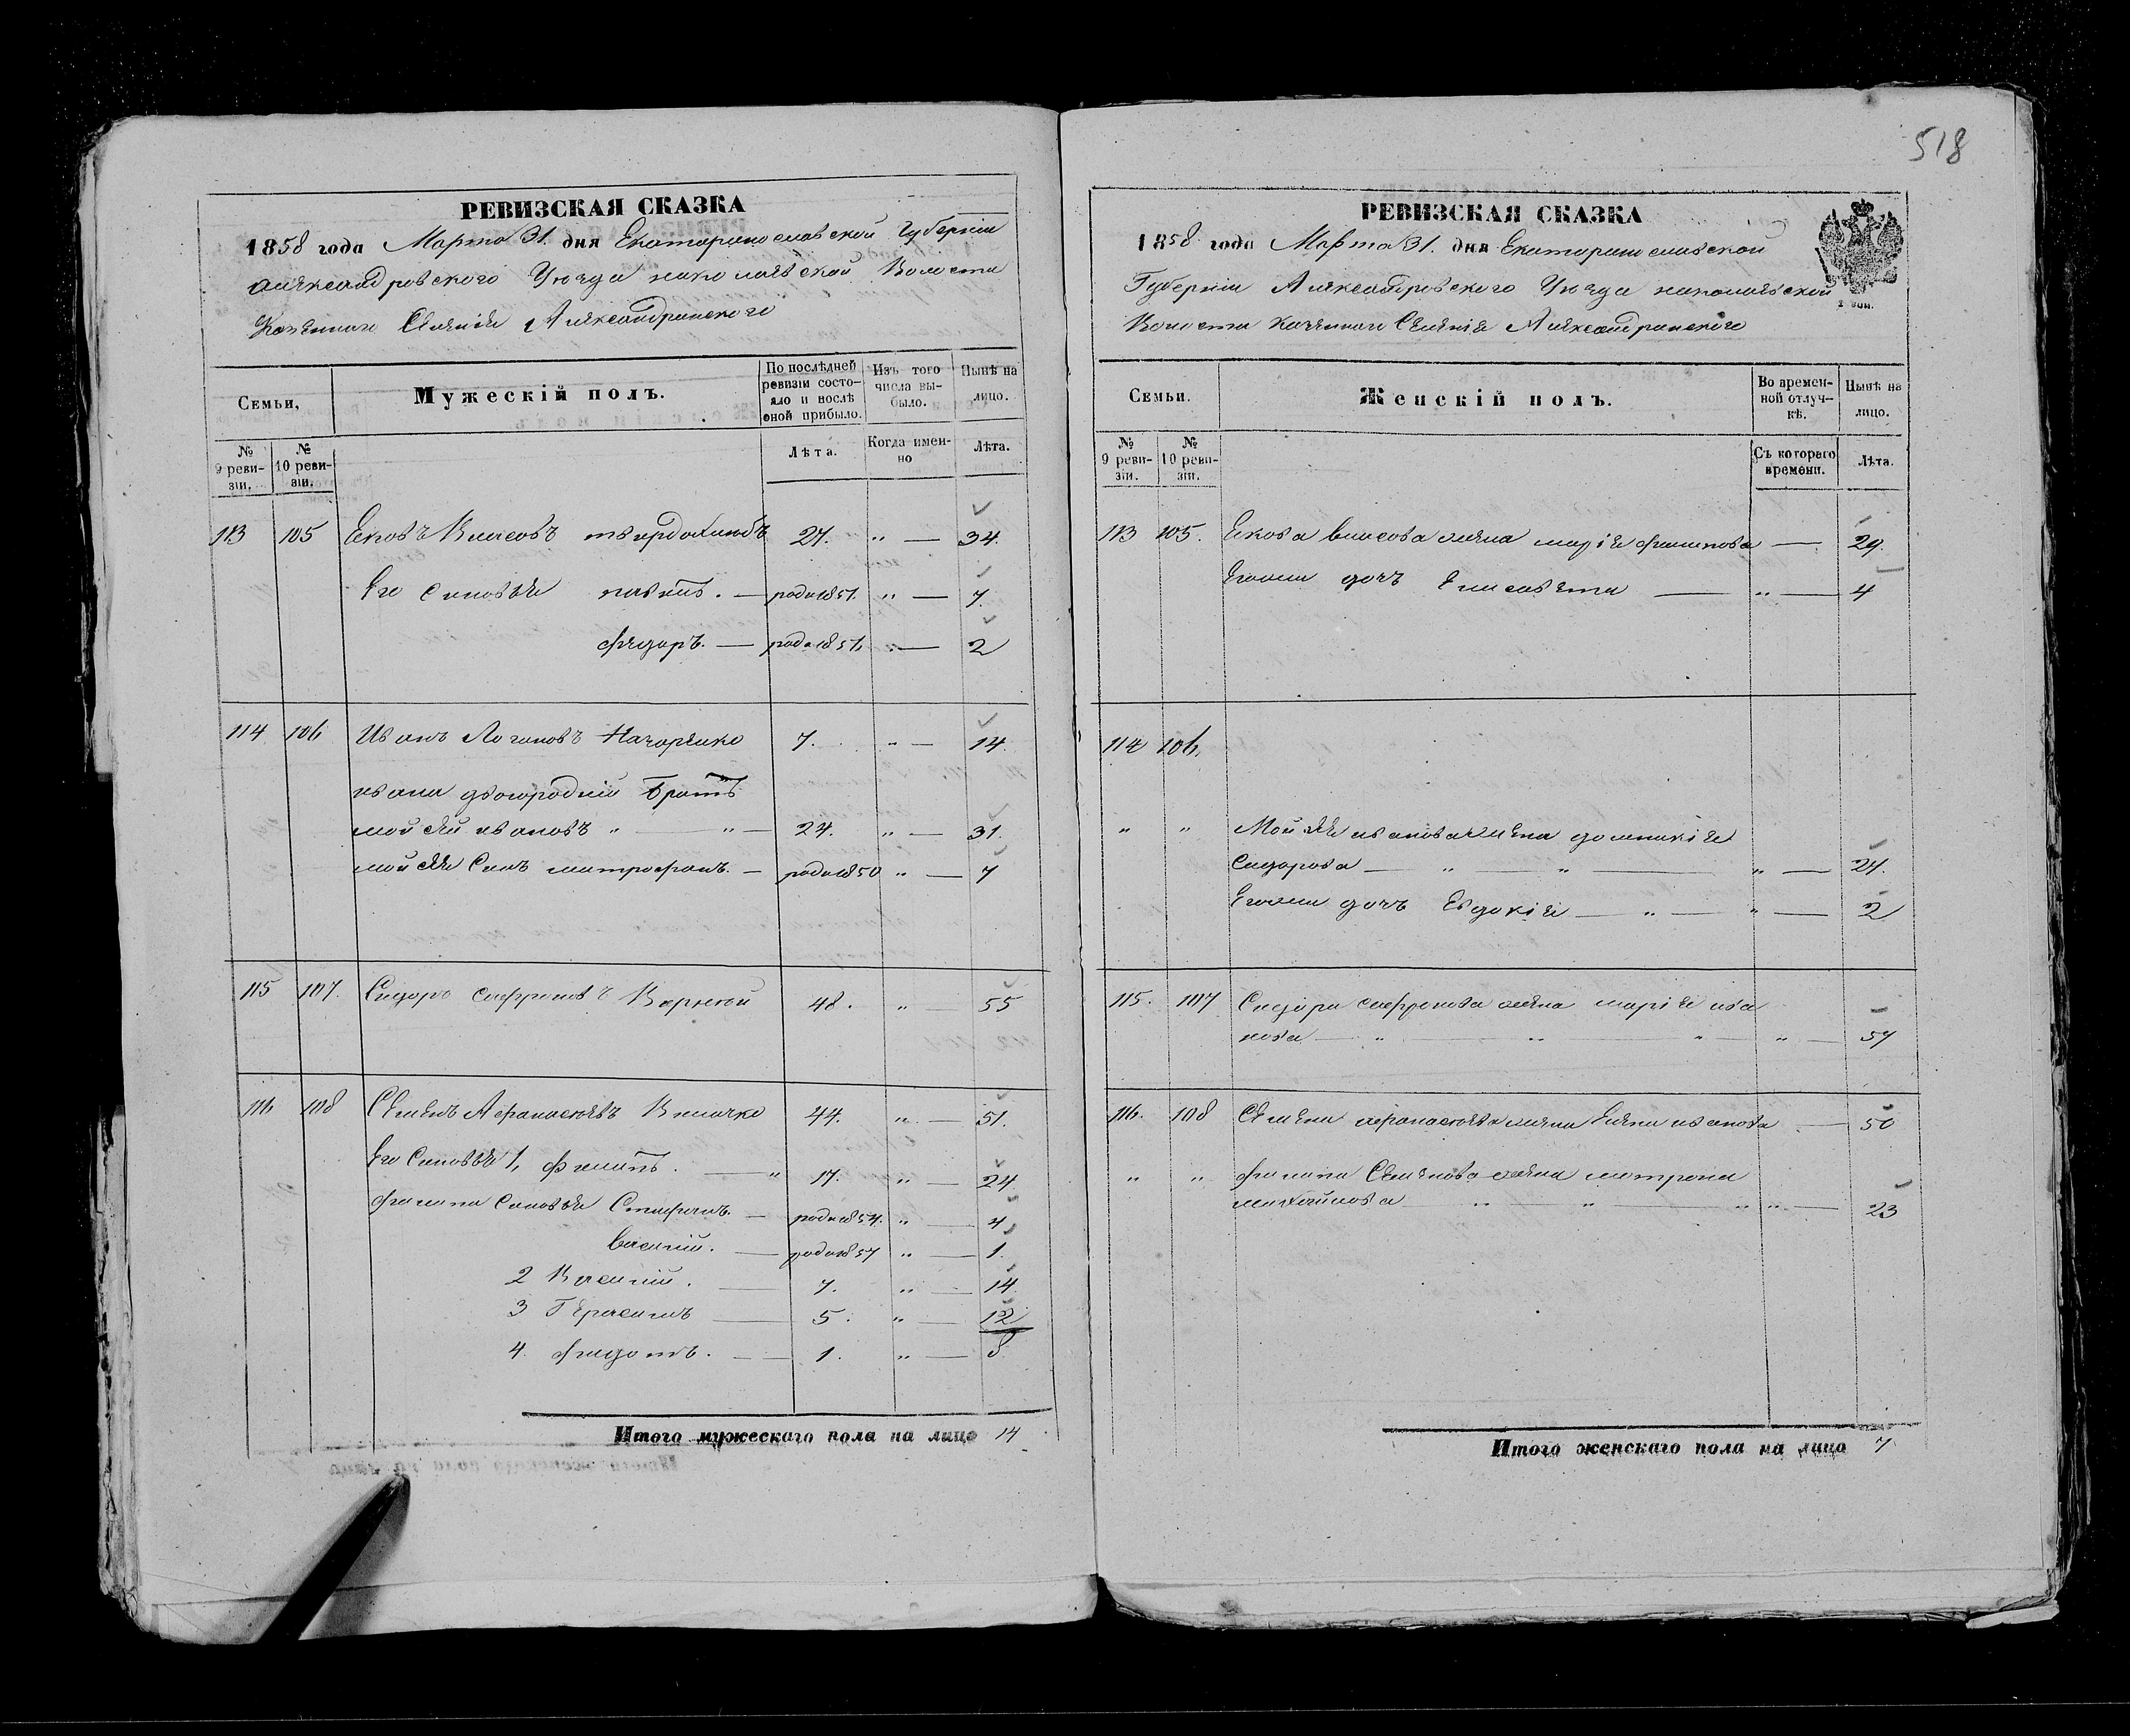 518
РЕВИЗСКАЯ СКАЗКА
1858 года Марта 31. дня Екатеринославской Губерніи
Александровского Уезда николаевской Волости
Казенного Селенія Александринского
Семьи,
Мужескій полъ.
По послѣдней ревизіи состояло и послѣ оной прибыло.
Изъ того числа выбыло.
Нынѣ на лицо.
№ 9 ревизіи.
№ 10 ревизіи.
Лѣта.
Когда именно
Лѣта.
113 105 Яковъ Власовъ 27. " — 34.
Его Сыновья павелъ. — рода 1851. " — 7.
федоръ. — " — 2
114 106 Иванъ 7. " — 14.
ивана двоюродній Братъ
мойсей ивановъ " — " — 24. " — 31.
мойсея Сынъ митрофанъ. — рода 1850 " — 7
115 107. Сидоръ сафроновъ 48. " — 55
116 108 Семенъ Афанасіевъ 44. " — 51.
Его Сыновья 1, филипъ. — " 17. " — 24
филипа Сыновья Стефанъ. — рода 1854. " — 4
Василій. — рода 1857 " — 1.
2 Василій. — 7. " — 14.
3 Герасимъ — 5. " — 12
4. федотъ. — 1. " — 8
Итого мужескаго пола на лицо 14
РЕВИЗСКАЯ СКАЗКА
1858 года Марта 31. дня Екатеринославской
Губерніи Александровского Уезда николаевской
Волости казенного Селенія Александринского
Семьи.
Женскій полъ.
Во временной отлучкѣ.
Нынѣ на лицо.
№ 9 ревизіи.
№ 10 ревизіи.
Съ котораго времени.
Лѣта.
113 105. Якова власова жена марія филипова — 29.
Егоже дочь Елисавета — " — 4
114 106.
" " Мойсея иванова жена домникія
Сидорова — " — " — " — 24.
Егоже дочь Евдокія — " — " — 2
115. 107 Сидора сафронова жена марія ива
нова — " — " — " — " — 57
116. 108 Семена афанасіева жена Елена иванова — 50
" " филипа Семенова жена матрона
михайлова " " " " — 23
Итого женскаго пола на лицо 7